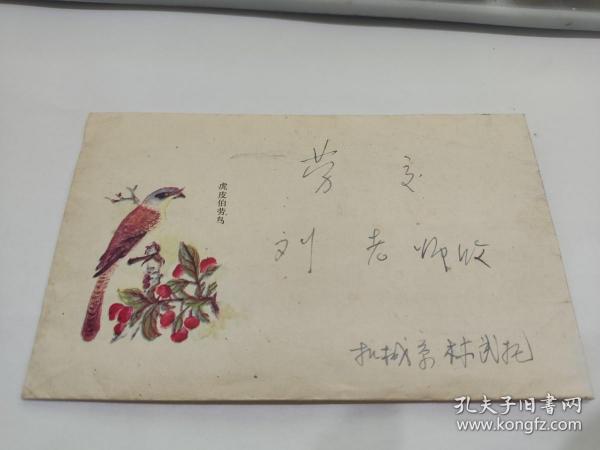 虎皮伯劳鸟
劳 交
刘 老师收
机械系 林武托
孔夫子旧书网
www.kongfz.com